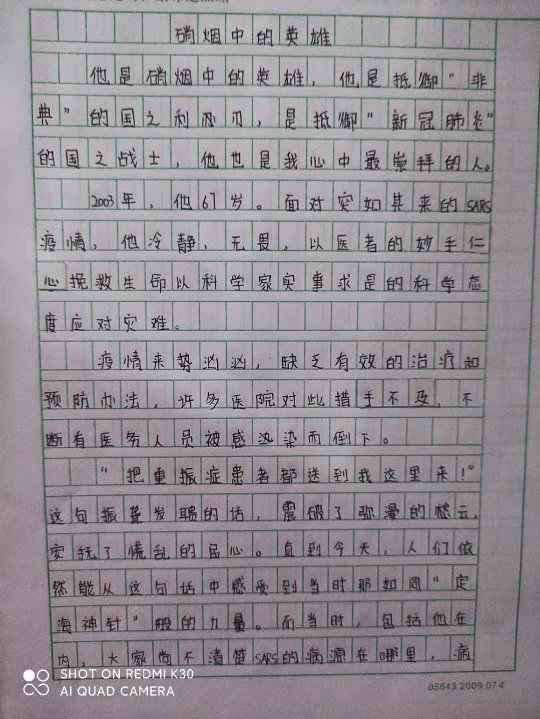 硝烟中的英雄
他是硝烟中的英雄，他是抵御“非
典”的国之利刃，是抵御“新冠肺炎”
的国之战士，他也是我心中最崇拜的人。
2003年，他67岁。面对突如其来的SARS
疫情，他冷静、无畏，以医者的妙手仁
心挽救生命以科学家实事求是的科学态
度应对灾难。
疫情来势汹汹，缺乏有效的治疗和
预防办法，许多医院对此措手不及，不
断有医务人员被感染而倒下。
“把重症患者都送到我这里来！”
这句振聋发聩的话，震破了弥漫的愁云，
安抚了慌乱的民心。直到今天，人们依
然能从这句话中感受到当时那如同“定
海神针”般的力量。而当时，包括他在
内，大家尚不清楚SARS的病源在哪里，病
SHOT ON REDMI K30
AI QUAD CAMERA
05643.2009.074